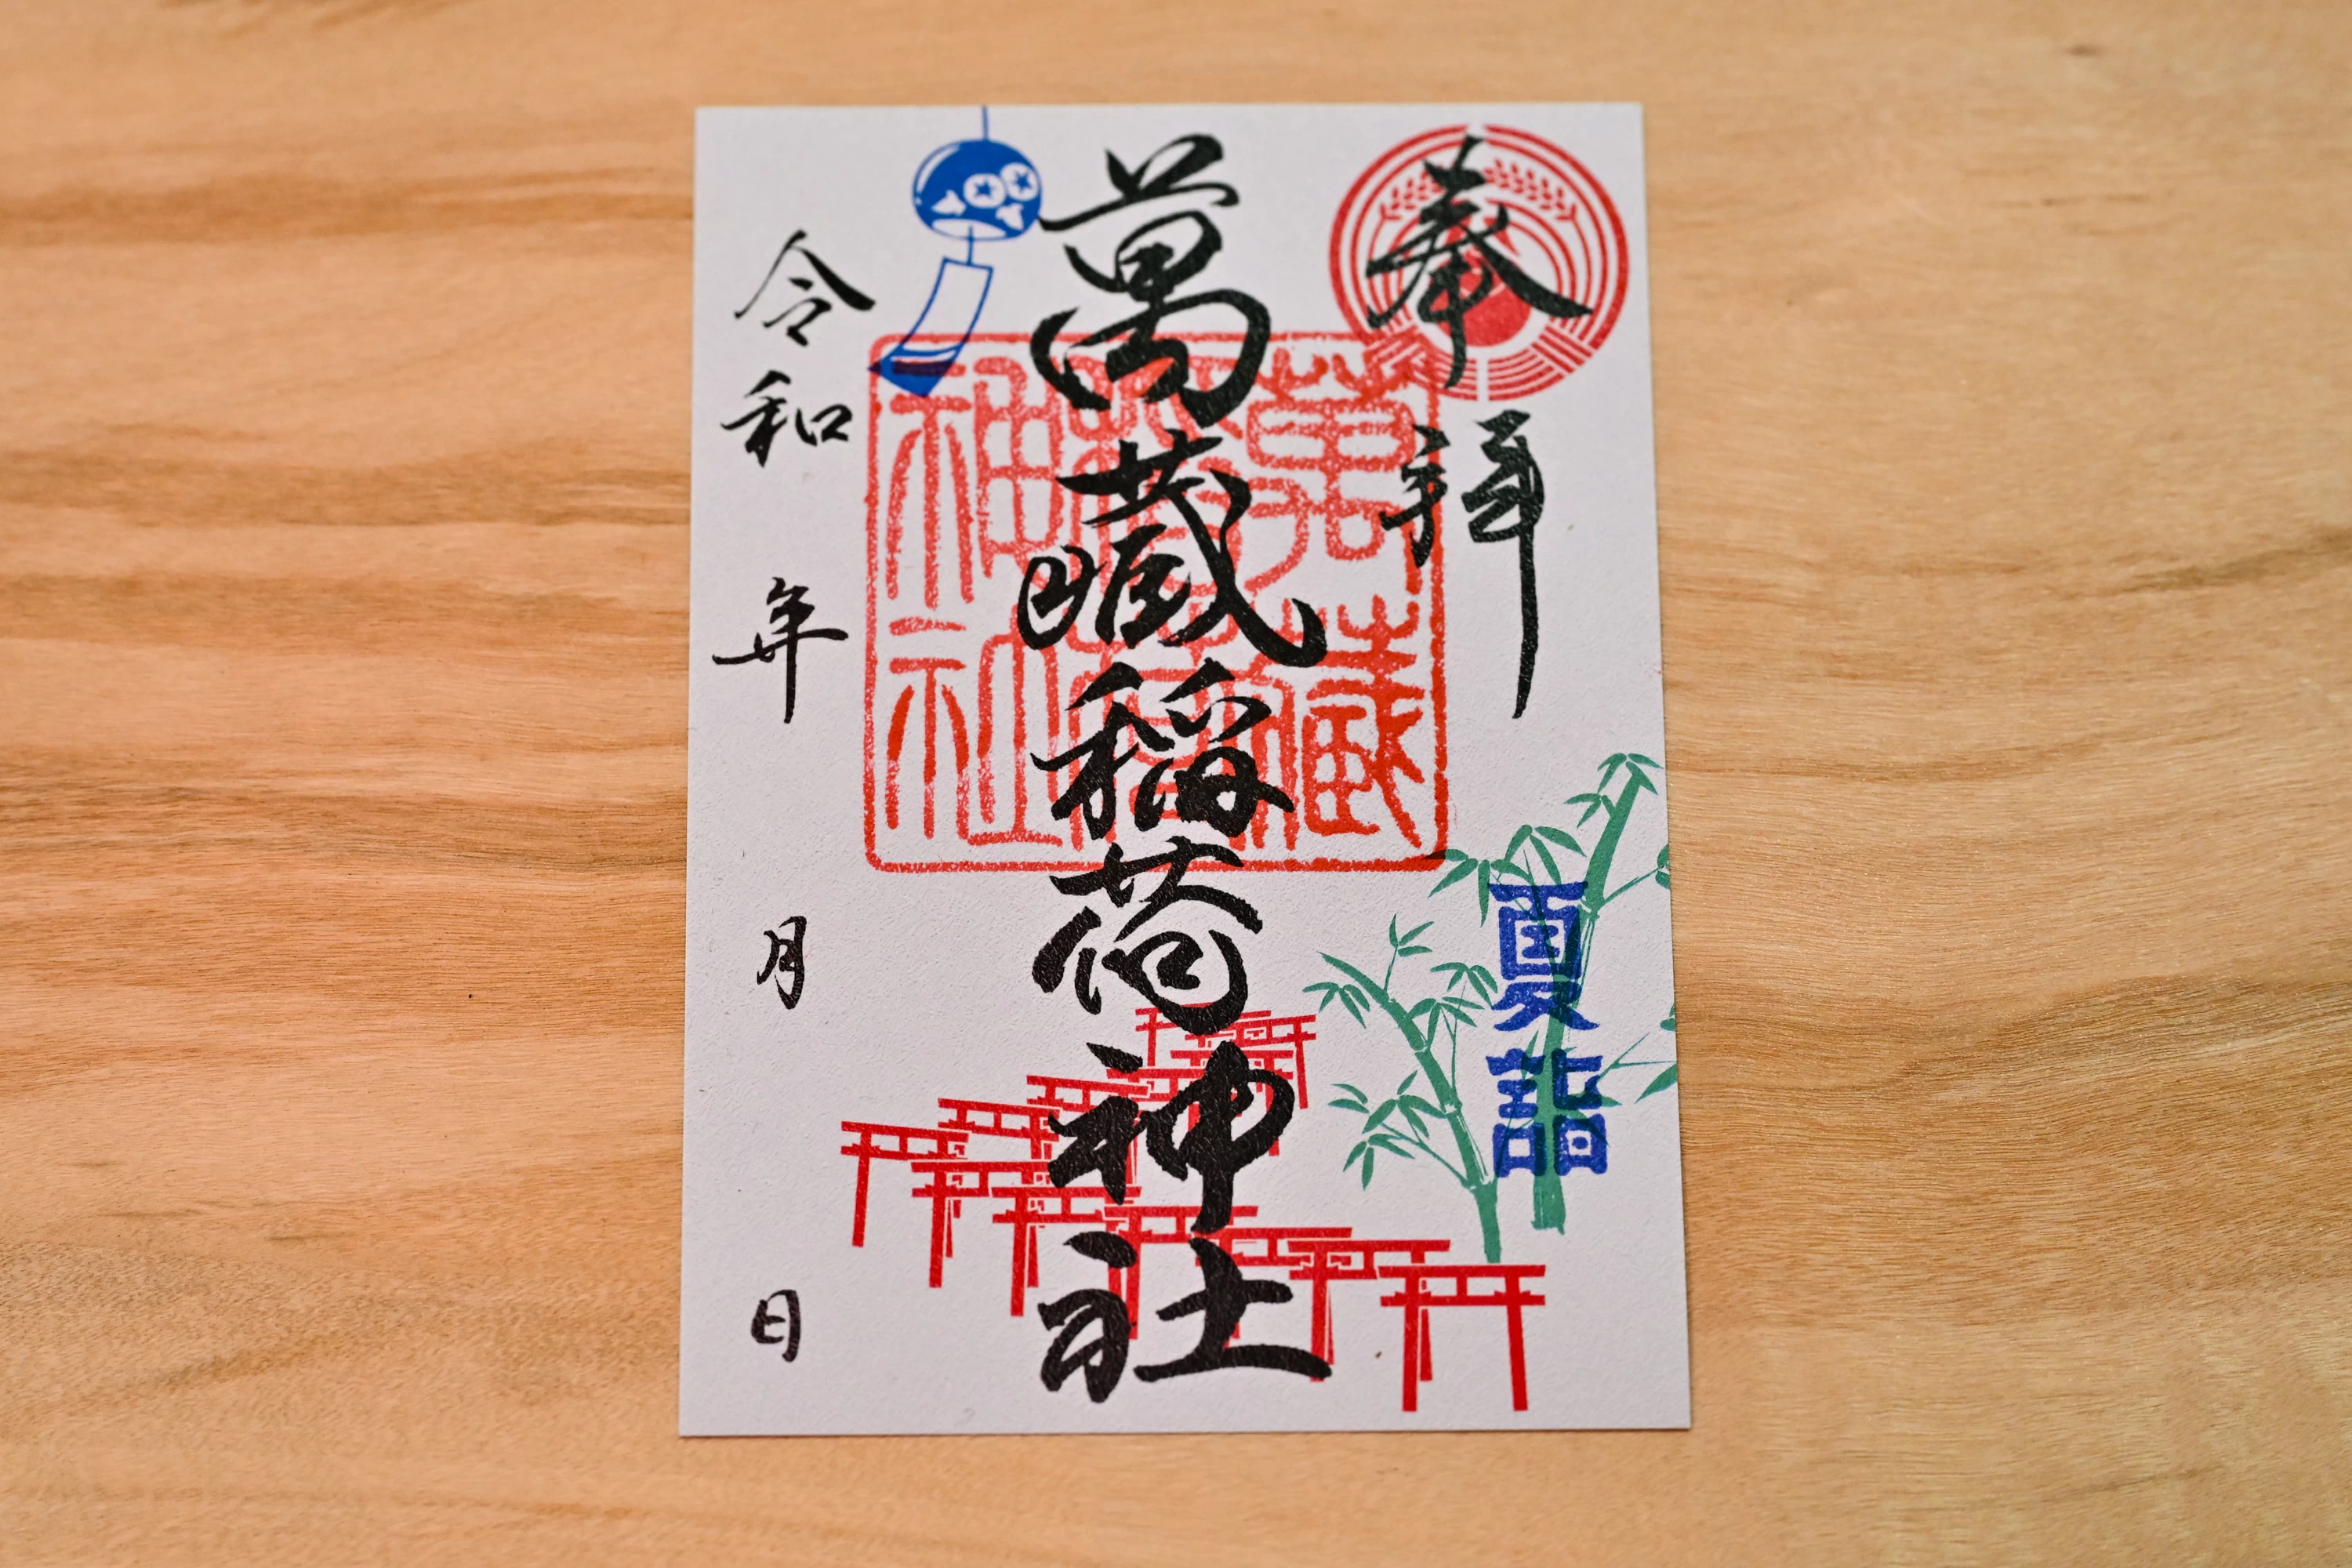 奉拝
萬藏稲荷神社
萬藏
稲荷
神社
夏詣
令和 年 月 日